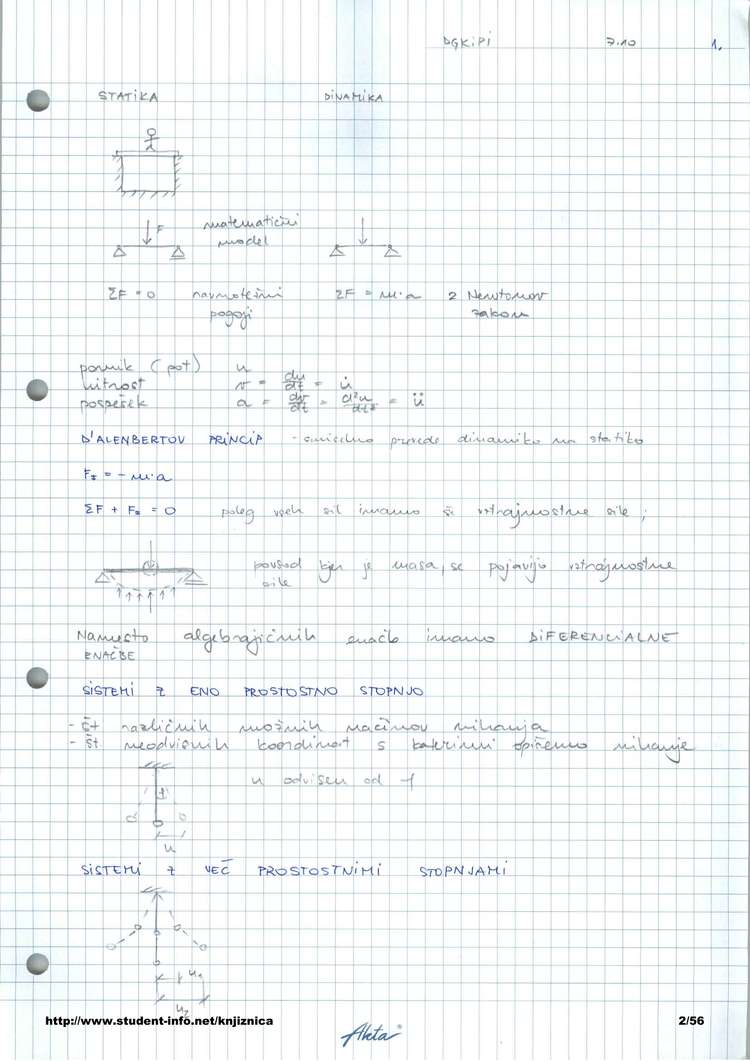 DGKiPi 7.10 1.
STATiKA DiNAMiKA
F matematični model
ΣF = 0 ravnotežni pogoji ΣF = m·a 2 Newtonov zakon
pomik (pot) u
hitrost v = du/dt = u̇
pospešek a = dv/dt = d²u/dt² = ü
D'ALENBERTOV PRiNCiP - smiselno prevede dinamiko na statiko
F_I = - m·a
ΣF + F_I = 0 poleg vseh sil imamo še vztrajnostne sile;
povsod kjer je masa, se pojavijo vztrajnostne
sile
Namesto algebrajičnih enačb imamo DiFERENCiALNE
ENAČBE
SiSTEMi Z ENO PROSTOSTNO STOPNJO
- št različnih možnih načinov nihanja
- št neodvisnih koordinat s katerimi opišemo nihanje
u odvisen od f
u
SiSTEMi Z VEČ PROSTOSTNiMi STOPNJAMi
u₁
u₂
http://www.student-info.net/knjiznica 2/56
Akta